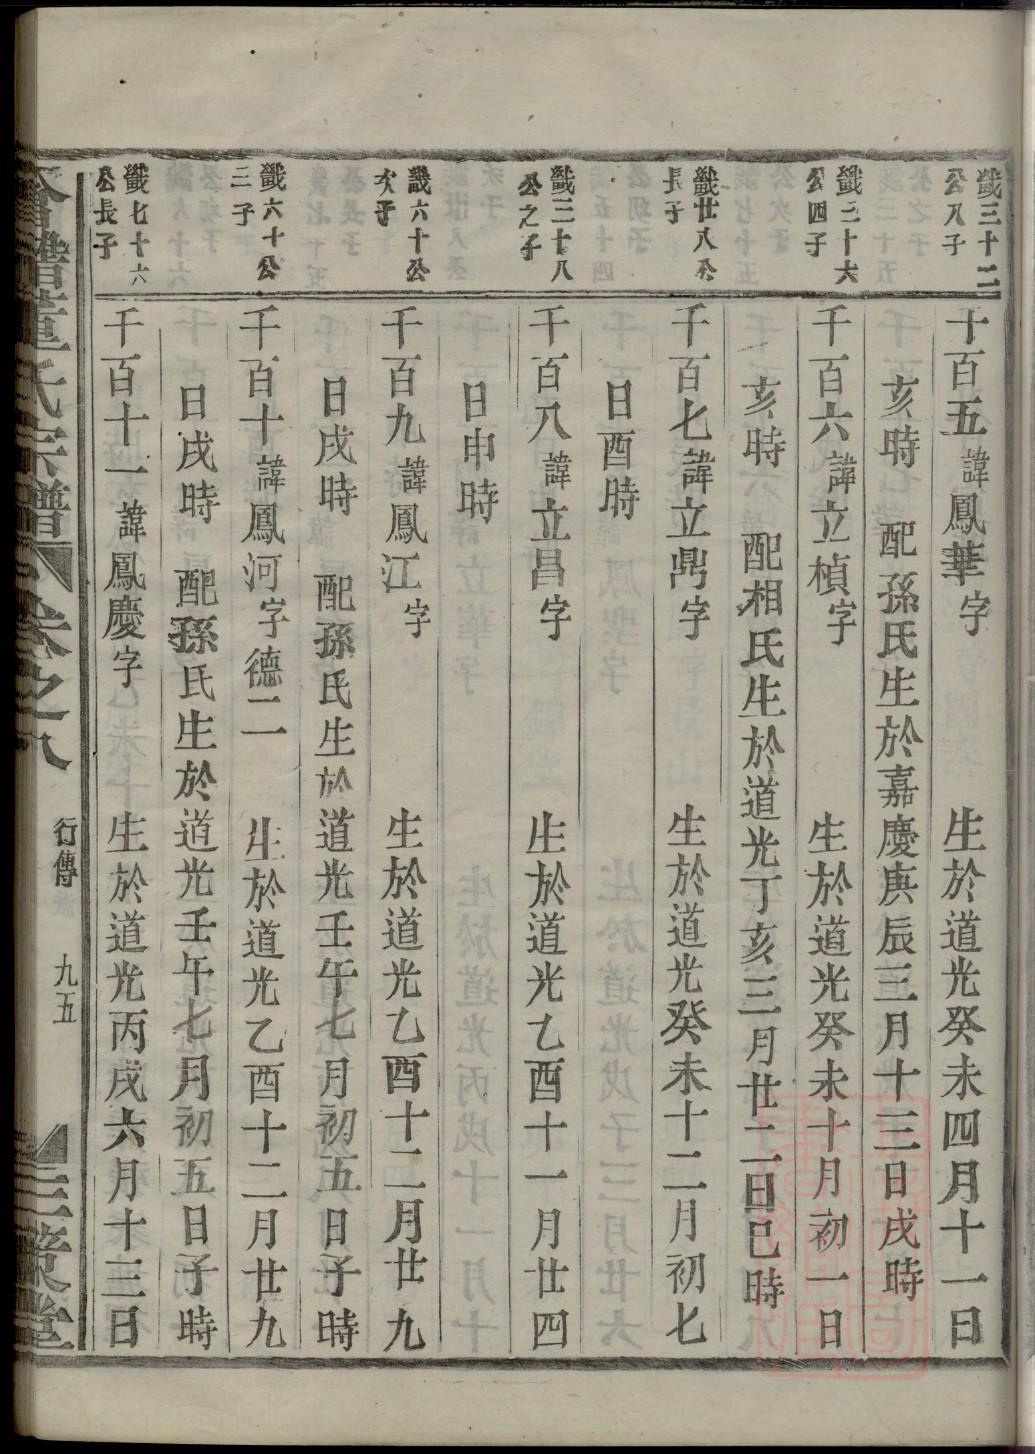 鐵三十二
公八子
千百五諱鳳華字 生於道光癸未四月十一日
亥時 配孫氏生於嘉慶庚辰三月十三日戌時
鐵三十六
公四子
千百六諱立楨字 生於道光癸未十月初一日
亥時 配相氏生於道光丁亥三月廿二日巳時
鐵廿八公
長子
千百七諱立鼎字 生於道光癸未十二月初七
日酉時
鐵三十八
公之子
千百八諱立昌字 生於道光乙酉十一月廿四
日申時
鐵六十公
次子
千百九諱鳳江字 生於道光乙酉十二月廿九
日戌時 配孫氏生於道光壬午七月初五日子時
鐵六十公
三子
千百十諱鳳河字德二 生於道光乙酉十二月廿九
日戌時 配孫氏生於道光壬午七月初五日子時
鐵七十六
公長子
千百十一諱鳳慶字 生於道光丙戌六月十三日
董氏宗譜 卷之八 行傳 九五 三策堂